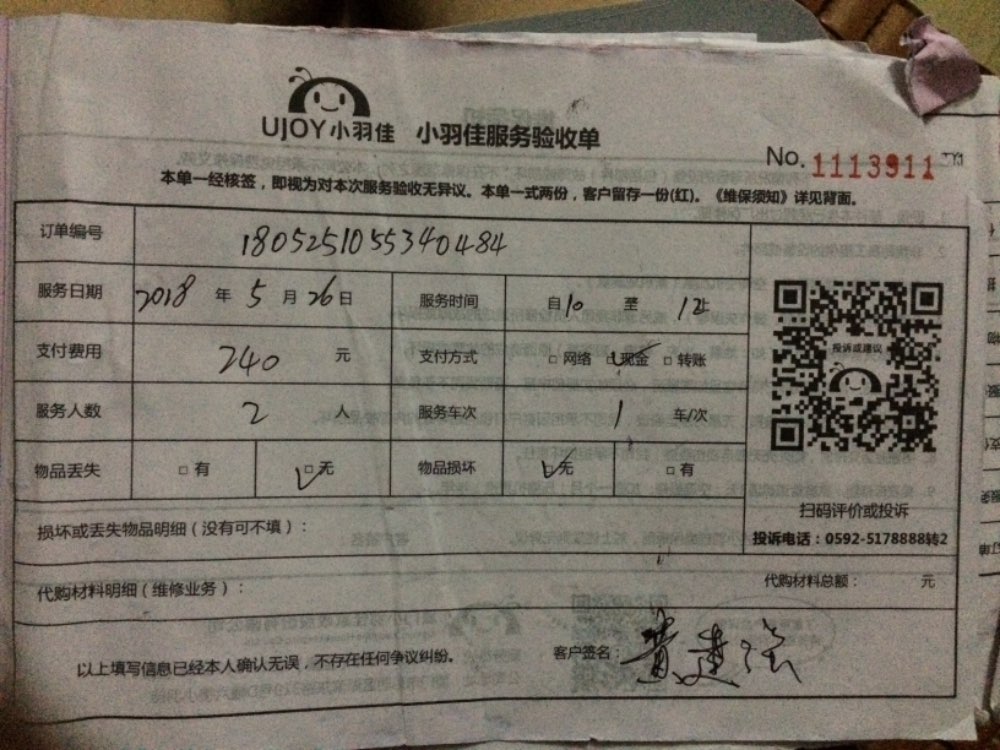 UJOY小羽佳 小羽佳服务验收单
No. 1113911
本单一经核签，即视为对本次服务验收无异议。本单一式两份，客户留存一份(红)。《维保须知》详见背面。
订单编号 180525105534​0484
服务日期 2018 年 5 月 26 日 服务时间 自10 至 12
支付费用 240 元 支付方式 □网络 □现金 □转账
服务人数 2 人 服务车次 1 车/次
物品丢失 □有 □无 物品损坏 □无 □有
投诉或建议
扫码评价或投诉
损坏或丢失物品明细(没有可不填)：
投诉电话：0592-5178888转2
代购材料明细(维修业务)： 代购材料总额： 元
以上填写信息已经本人确认无误，不存在任何争议纠纷。 客户签名：黄建